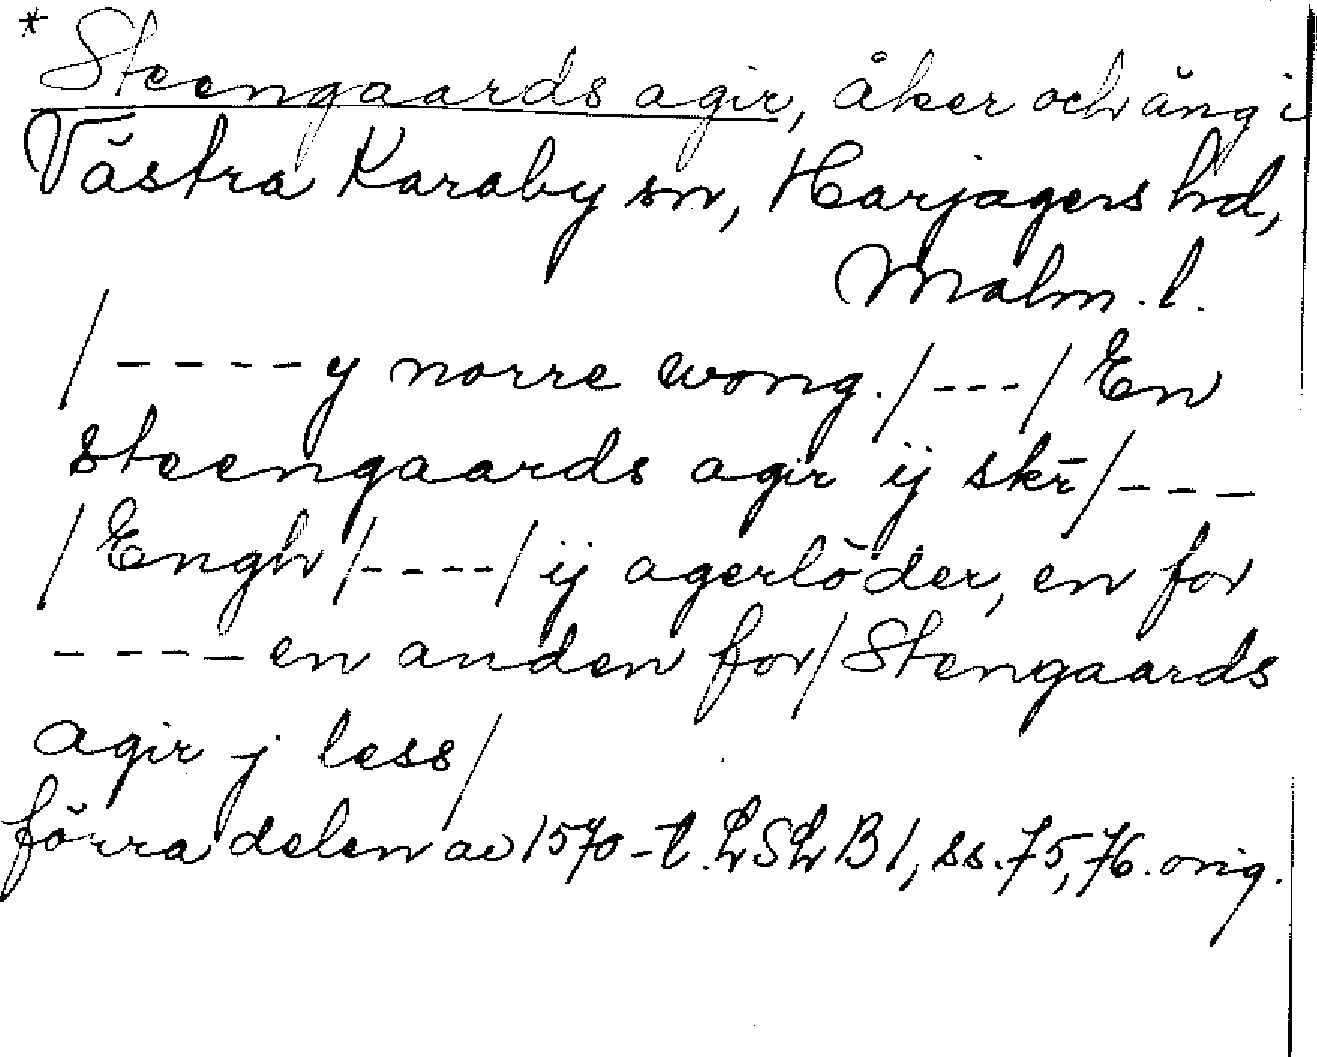 * Steengaards agir, åker och äng i
Västra Karaby sn, Harjagers hd,
Malm. l.
/ - - - - y norre wong. / - - - / En
steengaards agir ij skr̄ / - - -
/ Engh / - - - - / ij agerlöder, en for
- - - - en anden for / Stengaards
agir j less /
förra delen av 1570-t. LSLB 1, ss. 75, 76. orig.